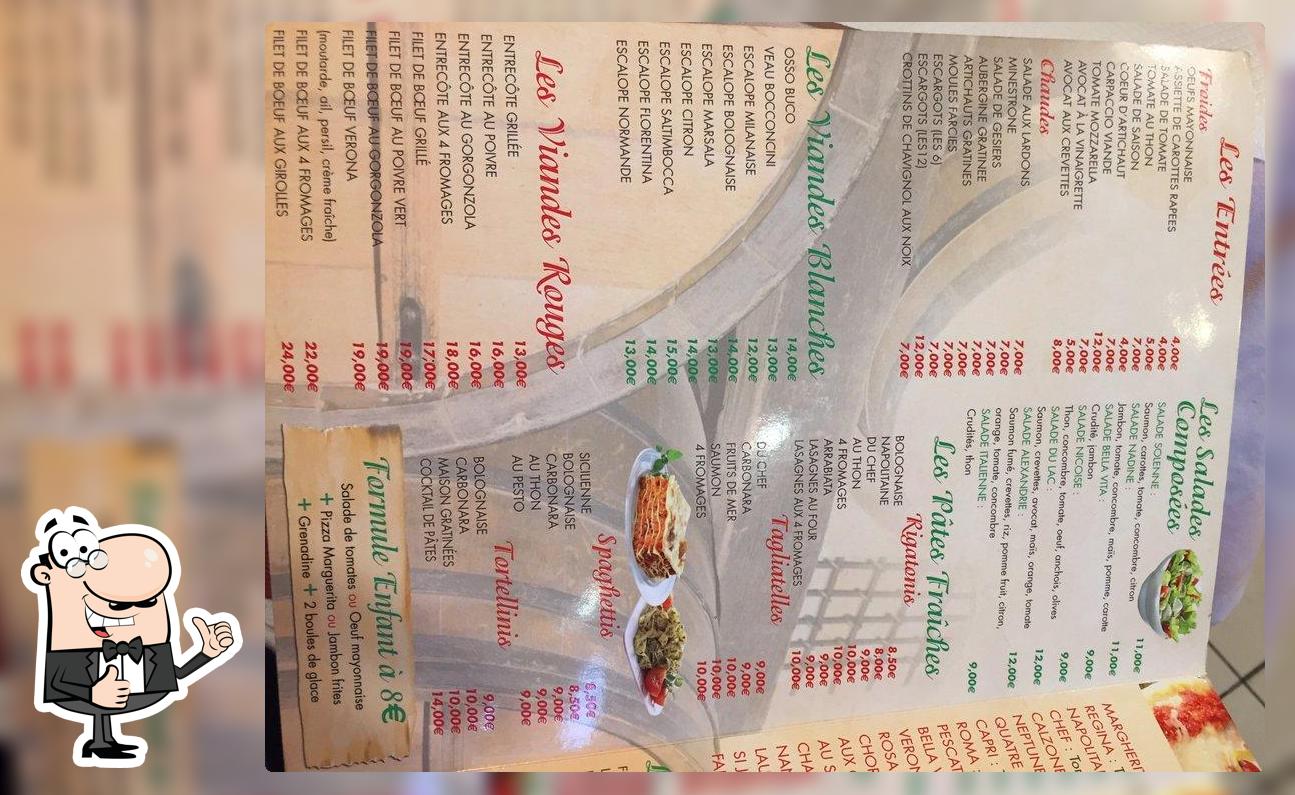 Les Entrées
Froides
OEUFS MAYONNAISE 4,00€
ASSIETTE DE CAROTTES RAPEES 4,00€
SALADE DE TOMATE 4,00€
TOMATE AU THON 5,00€
SALADE DE SAISON 4,00€
COEUR D'ARTICHAUT 4,00€
CARPACCIO VIANDE 12,00€
TOMATE MOZZARELLA 7,00€
AVOCAT À LA VINAIGRETTE 5,00€
AVOCAT AUX CREVETTES 8,00€
Chaudes
SALADE AUX LARDONS 7,00€
MINESTRONE 7,00€
SALADE DE GESIERS 7,00€
AUBERGINE GRATINEE 7,00€
ARTICHAUTS GRATINES 7,00€
MOULES FARCIES 7,00€
ESCARGOTS (LES 6) 7,00€
ESCARGOTS (LES 12) 12,00€
CROTTINS DE CHAVIGNOL AUX NOIX 7,00€
Les Viandes Blanches
OSSO BUCO 14,00€
VEAU BOCCONCINI 13,00€
ESCALOPE MILANAISE 12,00€
ESCALOPE BOLOGNAISE 14,00€
ESCALOPE MARSALA 13,00€
ESCALOPE CITRON 14,00€
ESCALOPE SALTIMBOCCA 15,00€
ESCALOPE FLORENTINA 14,00€
ESCALOPE NORMANDE 13,00€
Les Viandes Rouges
ENTRECÔTE GRILLÉE 13,00€
ENTRECÔTE AU POIVRE 16,00€
ENTRECÔTE AU GORGONZOLA 16,00€
ENTRECÔTE AUX 4 FROMAGES 18,00€
FILET DE BŒUF GRILLÉ 17,00€
FILET DE BŒUF AU POIVRE VERT 19,00€
FILET DE BŒUF AU GORGONZOLA 19,00€
FILET DE BŒUF VERONA 19,00€
(moutarde, ail, persil, crème fraîche)
FILET DE BŒUF AUX 4 FROMAGES 22,00€
FILET DE BOEUF AUX GIROLLES 24,00€
Les Salades
Composées
SALADE SOLENNE :
Saumon, carottes, tomate, concombre, citron 11,00€
SALADE NADINE :
Jambon, tomate, concombre, maïs, pomme, carotte 11,00€
SALADE BELLA VITA :
Crudité, jambon 9,00€
SALADE NICOISE :
Thon, concombre, tomate, oeuf, anchois, olives 9,00€
SALADE DU LAC :
Saumon, crevettes, avocat, maïs, orange, tomate 12,00€
SALADE ALEXANDRIE :
Saumon fumé, crevettes, riz, pomme fruit, citron,
orange, tomate, concombre 12,00€
SALADE ITALIENNE :
Crudités, thon 9,00€
Les Pâtes Fraîches
Rigatonis
BOLOGNAISE 8,50€
NAPOLITAINE 8,00€
DU CHEF 9,00€
AU THON 10,00€
4 FROMAGES 9,00€
ARRABIATA 9,00€
LASAGNES AU FOUR 9,00€
LASAGNES AUX 4 FROMAGES 10,00€
Tagliatelles
DU CHEF 9,00€
CARBONARA 9,00€
FRUITS DE MER 10,00€
SAUMON 10,00€
4 FROMAGES 10,00€
Spaghettis
SICILIENNE 8,50€
BOLOGNAISE 8,50€
CARBONARA 9,00€
AU THON 9,00€
AU PESTO 9,00€
Tortellinis
BOLOGNAISE 9,00€
CARBONARA 10,00€
MAISON GRATINÉES 10,00€
COCKTAIL DE PÂTES 14,00€
Formule Enfant à 8€
Salade de tomates ou Oeuf mayonnaise
+ Pizza Marguerita ou Jambon frites
+ Grenadine + 2 boules de glace
REGINA :
CHEF :
CALZONE
NEPTUNE
QUATRE
CAPRI :
ROMA :
BELLA
ROSA
AUX
AU